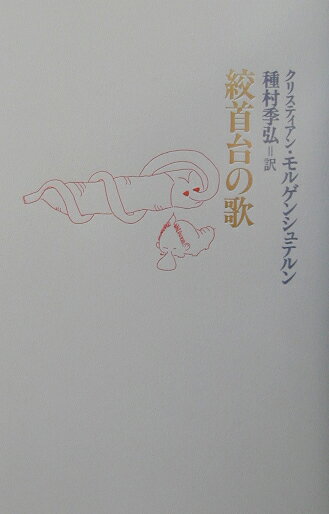 クリスティアン・モルゲンシュテルン
種村季弘=訳
絞首台の歌